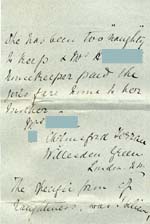 She has been too "naughty"
to keep & Mr D
Timekeeper paid the
fare home to her
brother
Chelmsford Terrace
Willesden Green
London N.W.
The specific form of
naughtiness, was